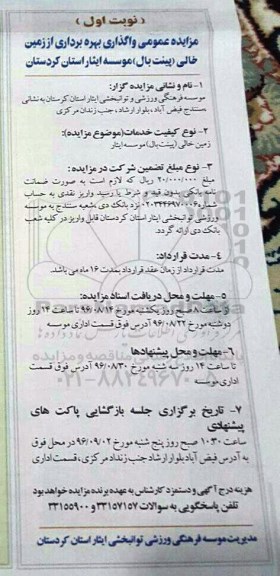 ( نوبت اول )
مزایده عمومی واگذاری بهره برداری از زمین
خالی (پینت بال) موسسه ایثار استان کردستان
۱- نام و نشانی مزایده گزار:
موسسه فرهنگی ورزشی و توانبخشی ایثار استان کرستان به نشانی
سنندج فیض آباد، بلوار ارشاد، جنب زندان مرکزی
۲- نوع کیفیت خدمات(موضوع مزایده):
زمین خالی (پینت بال) موسسه ایثار
۳- نوع مبلغ تضمین شرکت در مزایده:
مبلغ ۲۰/۰۰۰/۰۰۰ ریال که لازم است به صورت ضمانت
نامه بانکی بدون قید و شرط یا رسید واریز نقدی به حساب
شماره نزد بانک دی شعبه سنندج به موسسه
ورزشی توانبخشی ایثار استان کردستان قابل واریز در کلیه شعب
بانک دی ارائه گردد.
۴- مدت قرارداد:
مدت قرارداد از زمان عقد قرارداد بمدت ۱۶ ماه می باشد.
۵- مهلت و محل دریافت اسناد مزایده:
از ساعت ۸ صبح روز یکشنبه مورخ ۹۶/۰۸/۱۴ تا ساعت ۱۴ روز
دوشنبه مورخ ۹۶/۰۸/۲۲ آدرس فوق قسمت اداری موسسه
۶- مهلت و محل پیشنهادها
تا ساعت ۱۴ روز سه شنبه مورخ ۹۶/۰۸/۳۰ آدرس فوق قسمت
اداری موسسه
۷- تاریخ برگزاری جلسه بازگشایی پاکت های
پیشنهادی
ساعت ۱۰:۳۰ صبح روز پنج شنبه مورخ ۹۶/۰۹/۰۲ در محل فوق
به آدرس فیض آباد بلوار ارشاد جنب زندان مرکزی، قسمت اداری
هزینه درج آگهی و دستمزد کارشناس به عهده برنده مزایده خواهد بود
تلفن پاسخگویی به سوالات ۳۳۱۵۷۱۵۷ و ۳۳۱۵۵۹۰۰
مدیریت موسسه فرهنگی ورزشی توانبخشی ایثار استان کردستان
۰۲۱-۸۸۳۴۹۶۷۰